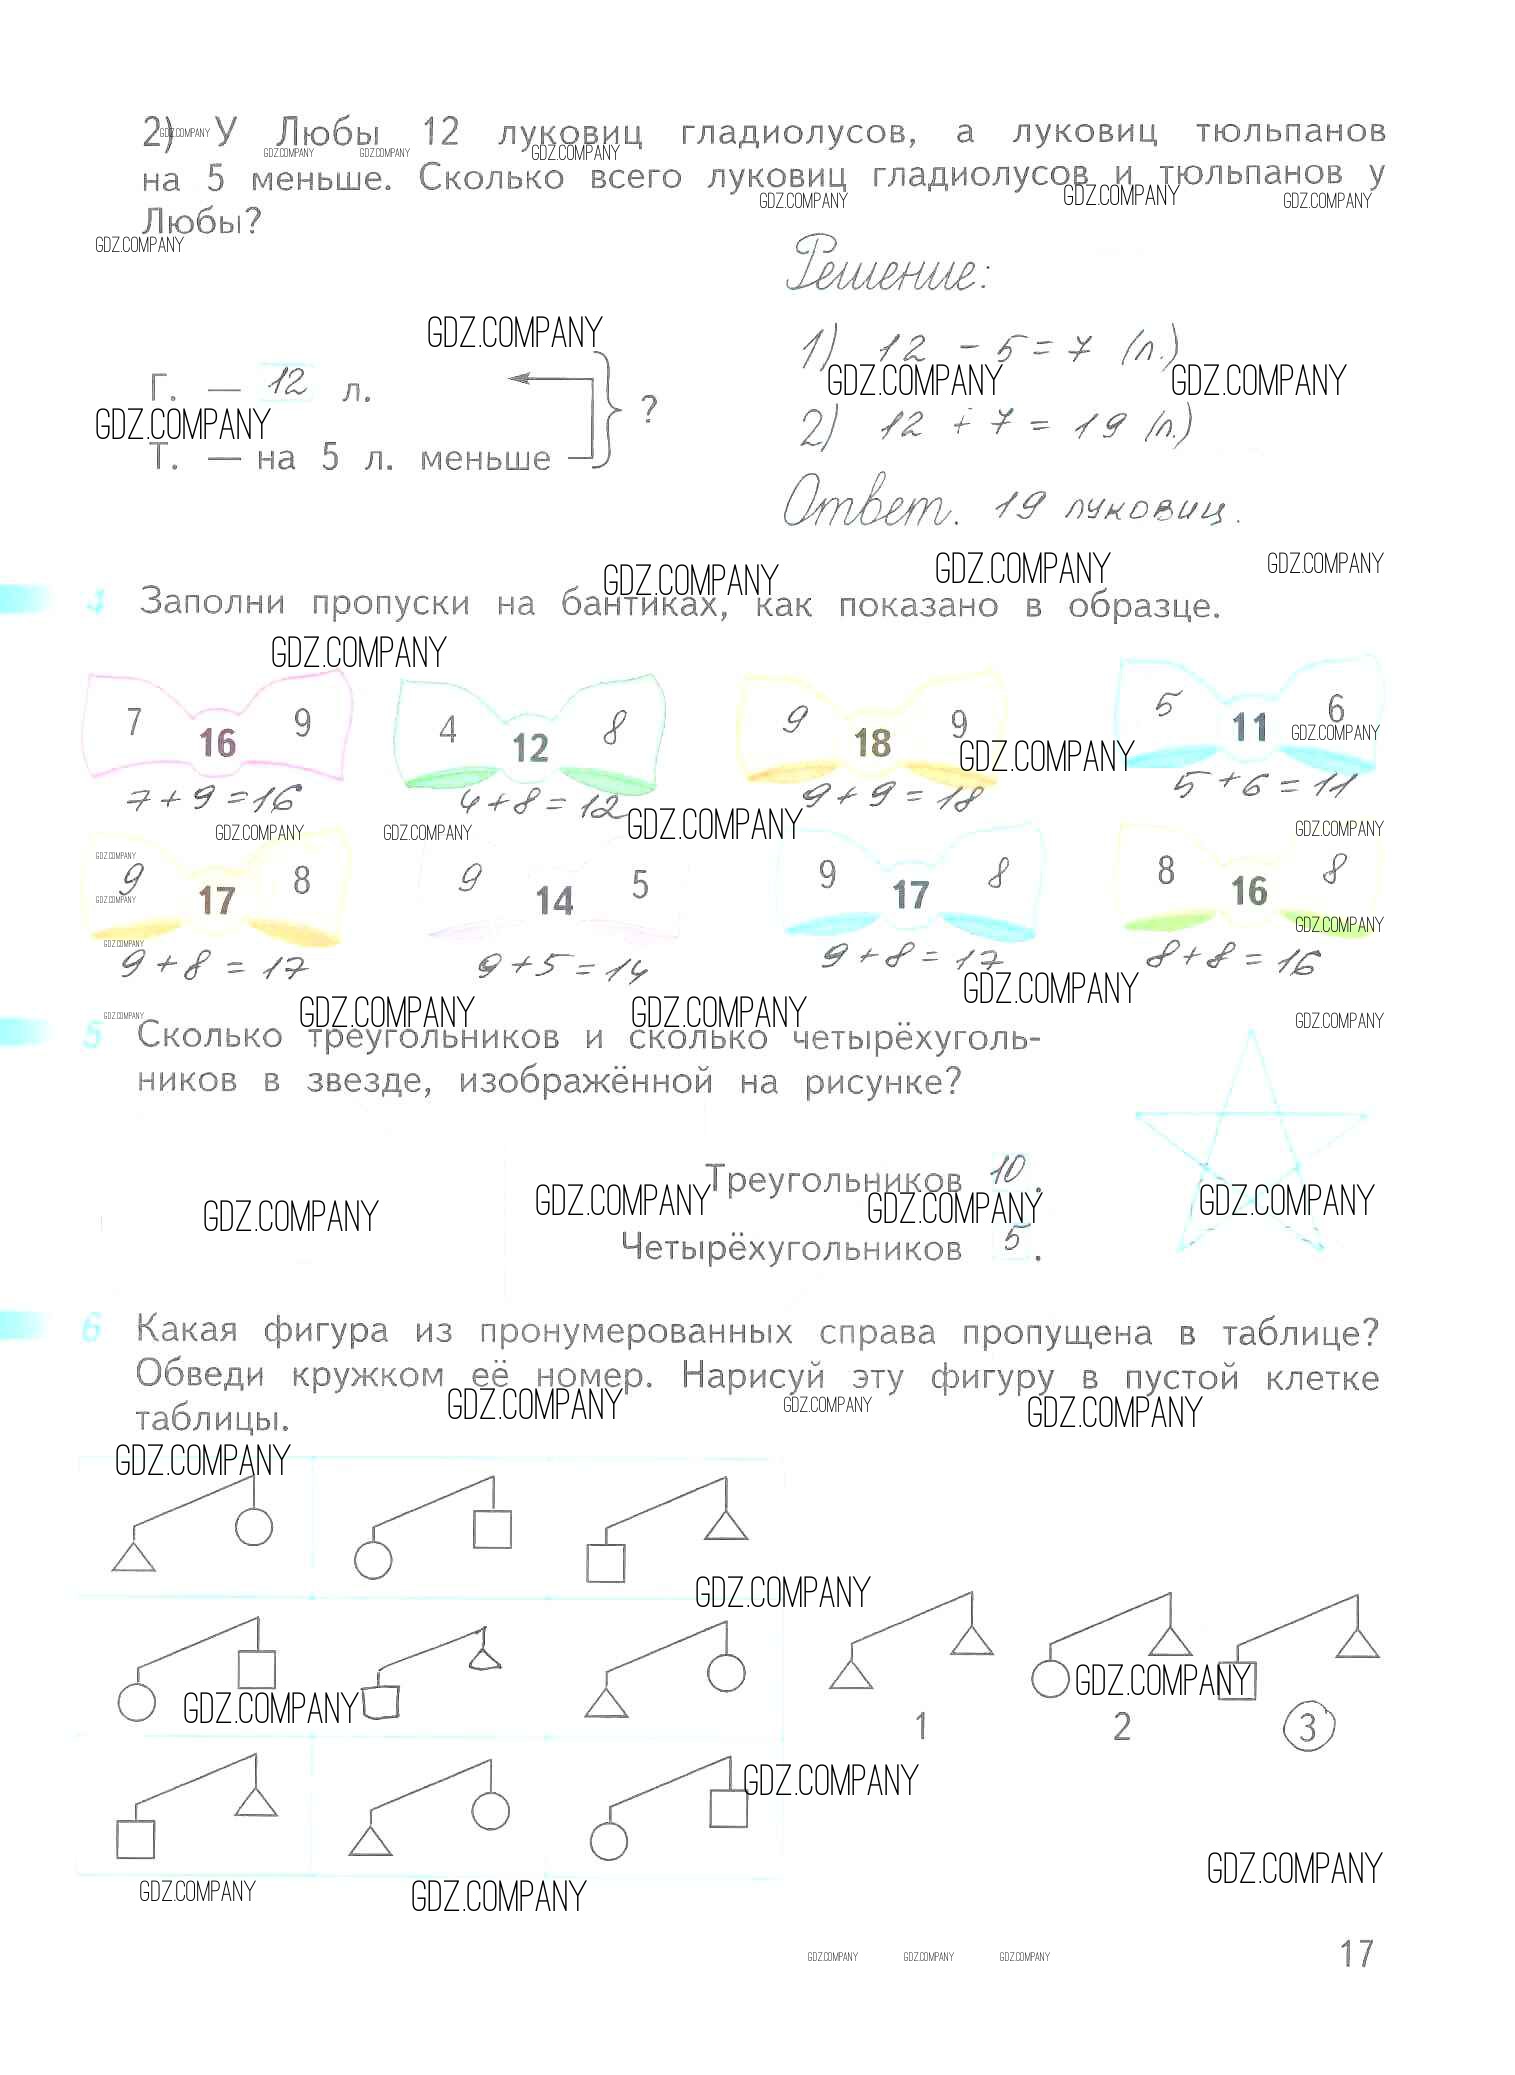 2) У Любы 12 луковиц гладиолусов, а луковиц тюльпанов
на 5 меньше. Сколько всего луковиц гладиолусов и тюльпанов у
Любы?
Решение:
1) 12 - 5 = 7 (л.)
Г. — 12 л.
?
2) 12 + 7 = 19 (л.)
Т. — на 5 л. меньше
Ответ. 19 луковиц.
4 Заполни пропуски на бантиках, как показано в образце.
7 16 9 4 12 8 9 18 9 5 11 6
7 + 9 = 16 4 + 8 = 12 9 + 9 = 18 5 + 6 = 11
9 17 8 9 14 5 9 17 8 8 16 8
9 + 8 = 17 9 + 5 = 14 9 + 8 = 17 8 + 8 = 16
5 Сколько треугольников и сколько четырёхуголь-
ников в звезде, изображённой на рисунке?
Треугольников 10.
Четырёхугольников 5.
6 Какая фигура из пронумерованных справа пропущена в таблице?
Обведи кружком её номер. Нарисуй эту фигуру в пустой клетке
таблицы.
1 2 3
17
GDZ.COMPANY